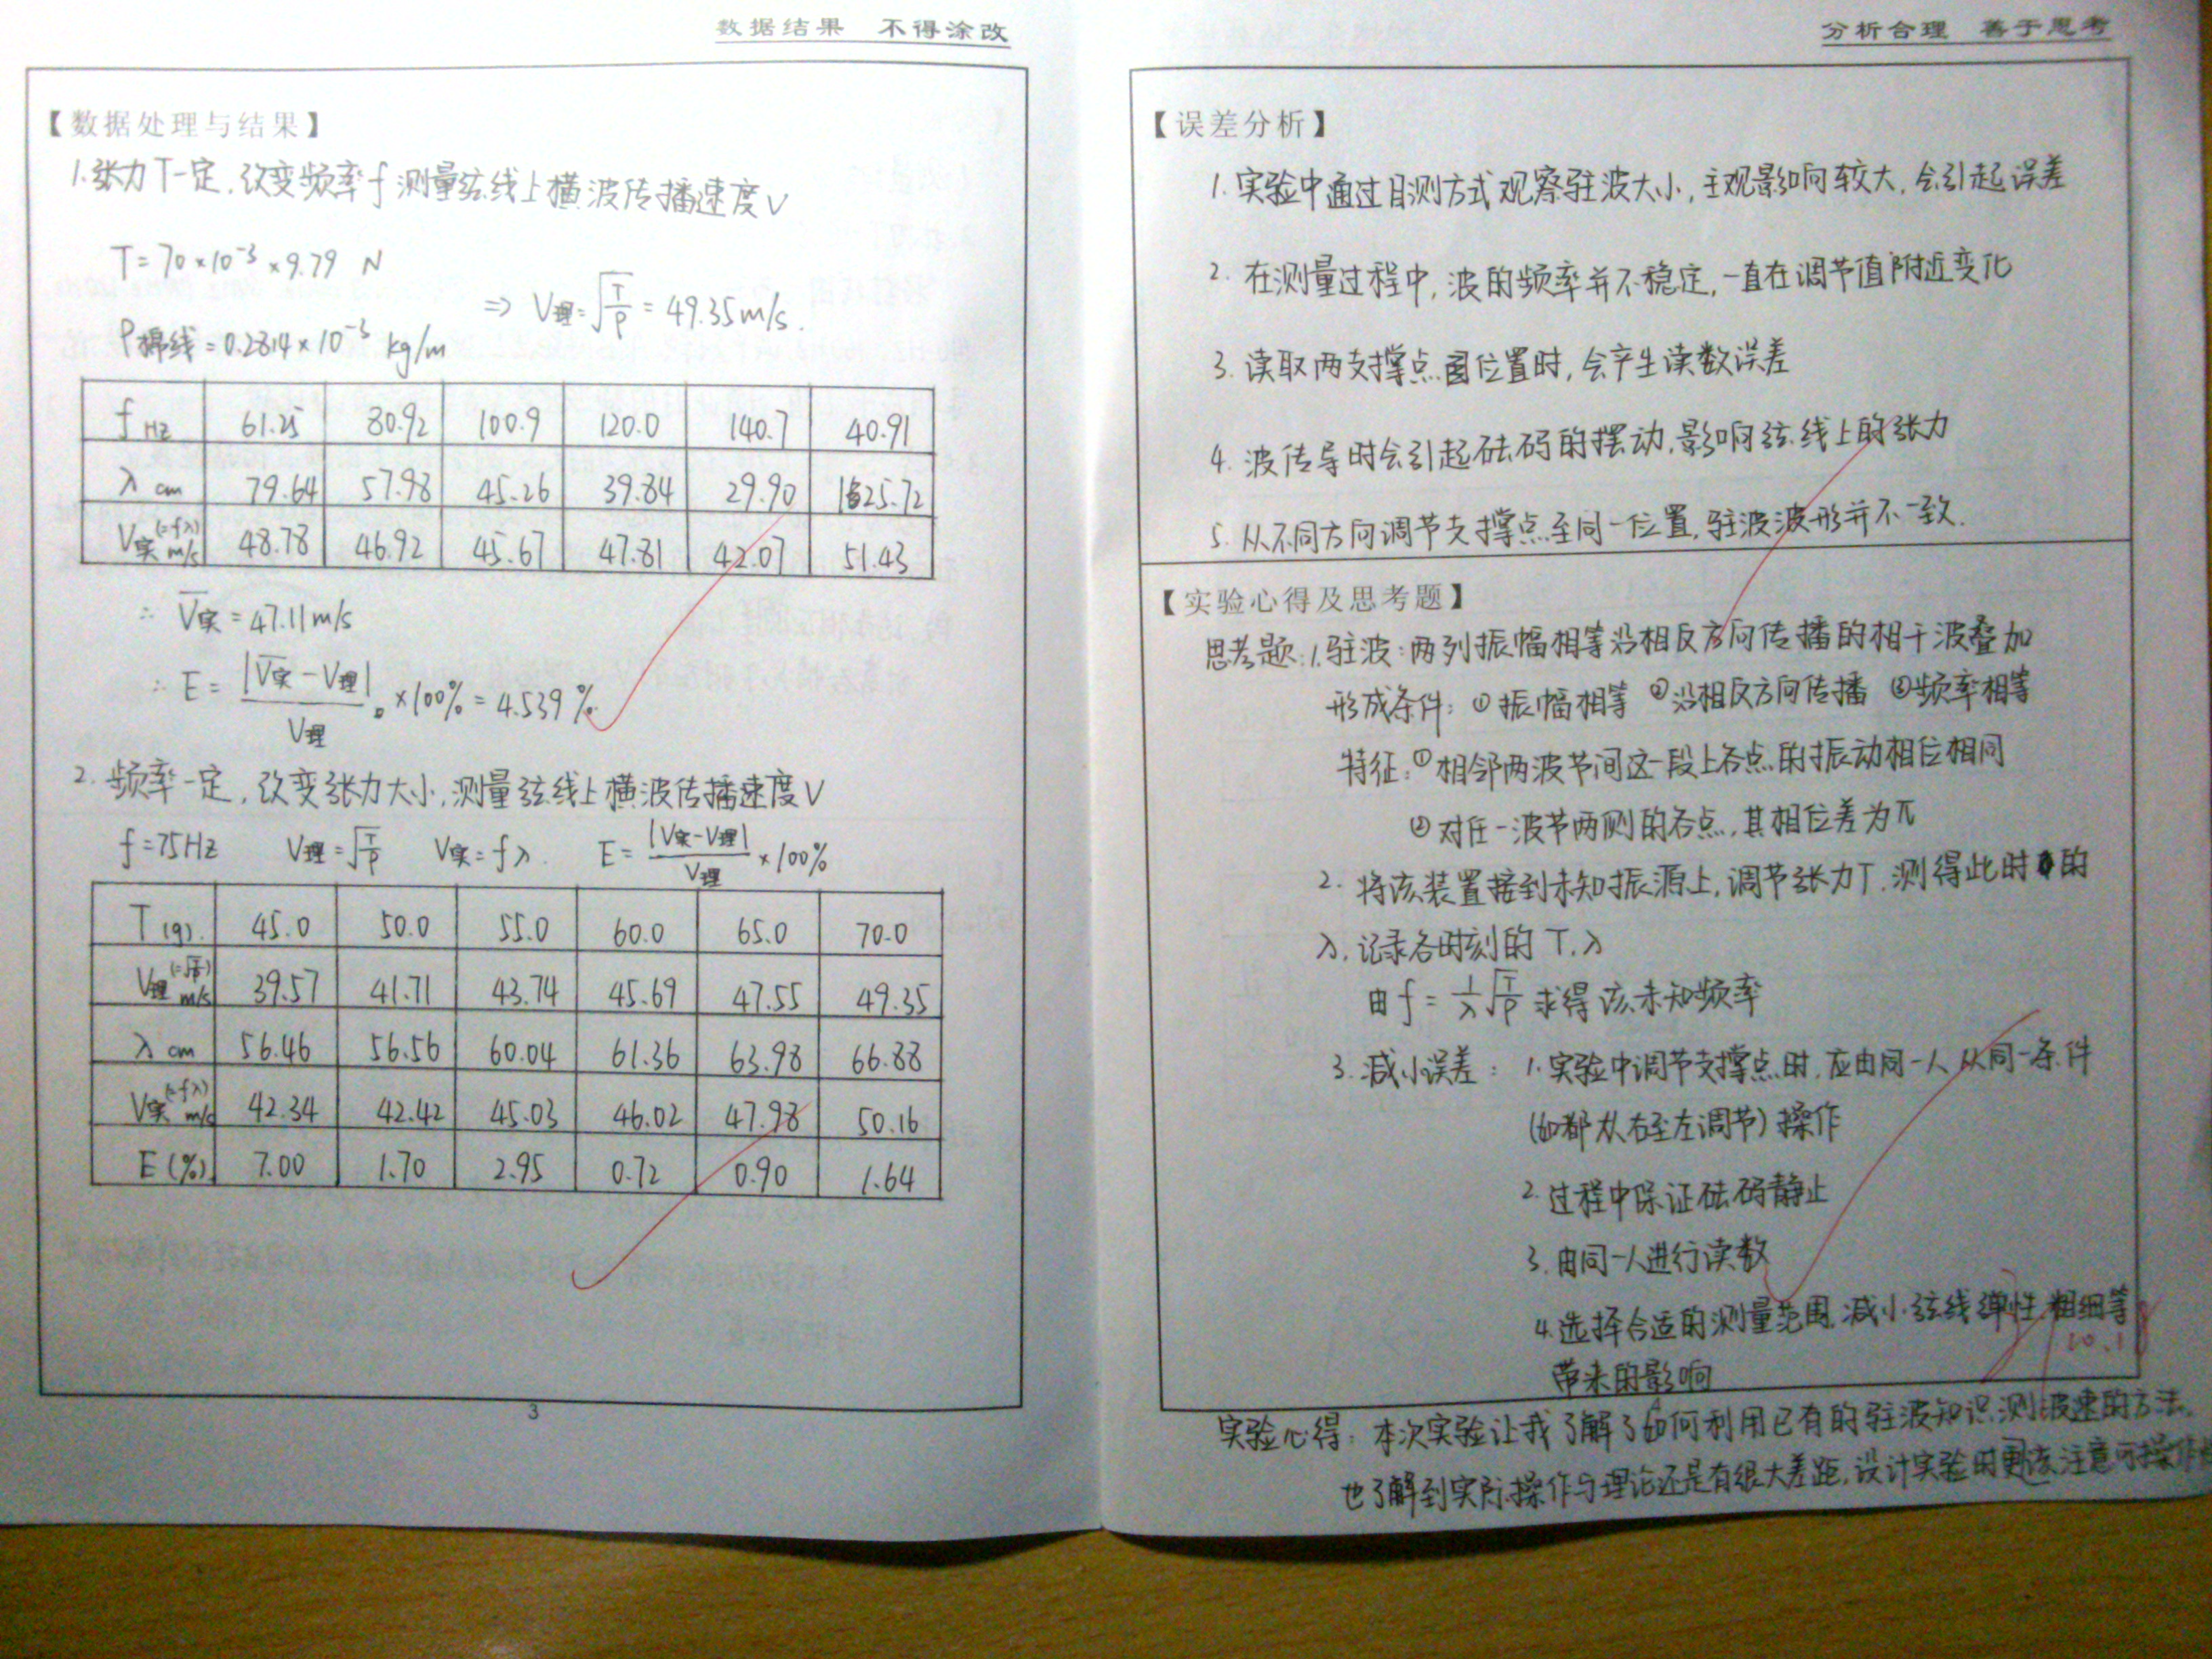 数据结果 不得涂改
【数据处理与结果】
1.张力T一定,改变频率f测量弦线上横波传播速度V
T=70×10⁻³×9.79 N
⇒ V理=√(T/ρ)=49.35m/s.
ρ棉线=0.2814×10⁻³ kg/m
f Hz 61.25 80.92 100.9 120.0 140.7 40.91
λ cm 79.64 57.98 45.26 39.84 29.90 125.72
V实(=fλ) m/s 48.78 46.92 45.67 47.81 42.07 51.43
∴ V̅实=47.11m/s
∴ E=|V̅实-V理|/V理 ×100%=4.539%
2.频率一定,改变张力大小,测量弦线上横波传播速度V
f=75Hz V理=√(T/ρ) V实=fλ. E=|V实-V理|/V理×100%
T(g). 45.0 50.0 55.0 60.0 65.0 70.0
V理(=√(T/ρ)) m/s 39.57 41.71 43.74 45.69 47.55 49.35
λ cm 56.46 56.56 60.04 61.36 63.98 66.88
V实(=fλ) m/s 42.34 42.42 45.03 46.02 47.98 50.16
E(%) 7.00 1.70 2.95 0.72 0.90 1.64
3
分析合理 善于思考
【误差分析】
1.实验中通过目测方式观察驻波大小,主观影响较大,会引起误差
2.在测量过程中,波的频率并不稳定,一直在调节值附近变化
3.读取两支撑点位置时,会产生读数误差
4.波传导时会引起砝码的摆动,影响弦线上的张力
5.从不同方向调节支撑点至同一位置,驻波波形并不一致.
【实验心得及思考题】
思考题:1.驻波:两列振幅相等沿相反方向传播的相干波叠加
形成条件:①振幅相等 ②沿相反方向传播 ③频率相等
特征:①相邻两波节间这一段上各点的振动相位相同
②对任一波节两侧的各点,其相位差为π
2.将该装置接到未知振源上,调节张力T,测得此时的
λ,记录各时刻的T,λ
由f=1/λ√(T/ρ)求得该未知频率
3.减小误差:1.实验中调节支撑点时,应由同一人从同一条件
(如都从右至左调节)操作
2.过程中保证砝码静止
3.由同一人进行读数
4.选择合适的测量范围,减小弦线弹性,粗细等
带来的影响
实验心得:本次实验让我了解了如何利用已有的驻波知识测波速的方法,
也了解到实际操作与理论还是有很大差距,设计实验时更该注意可操作